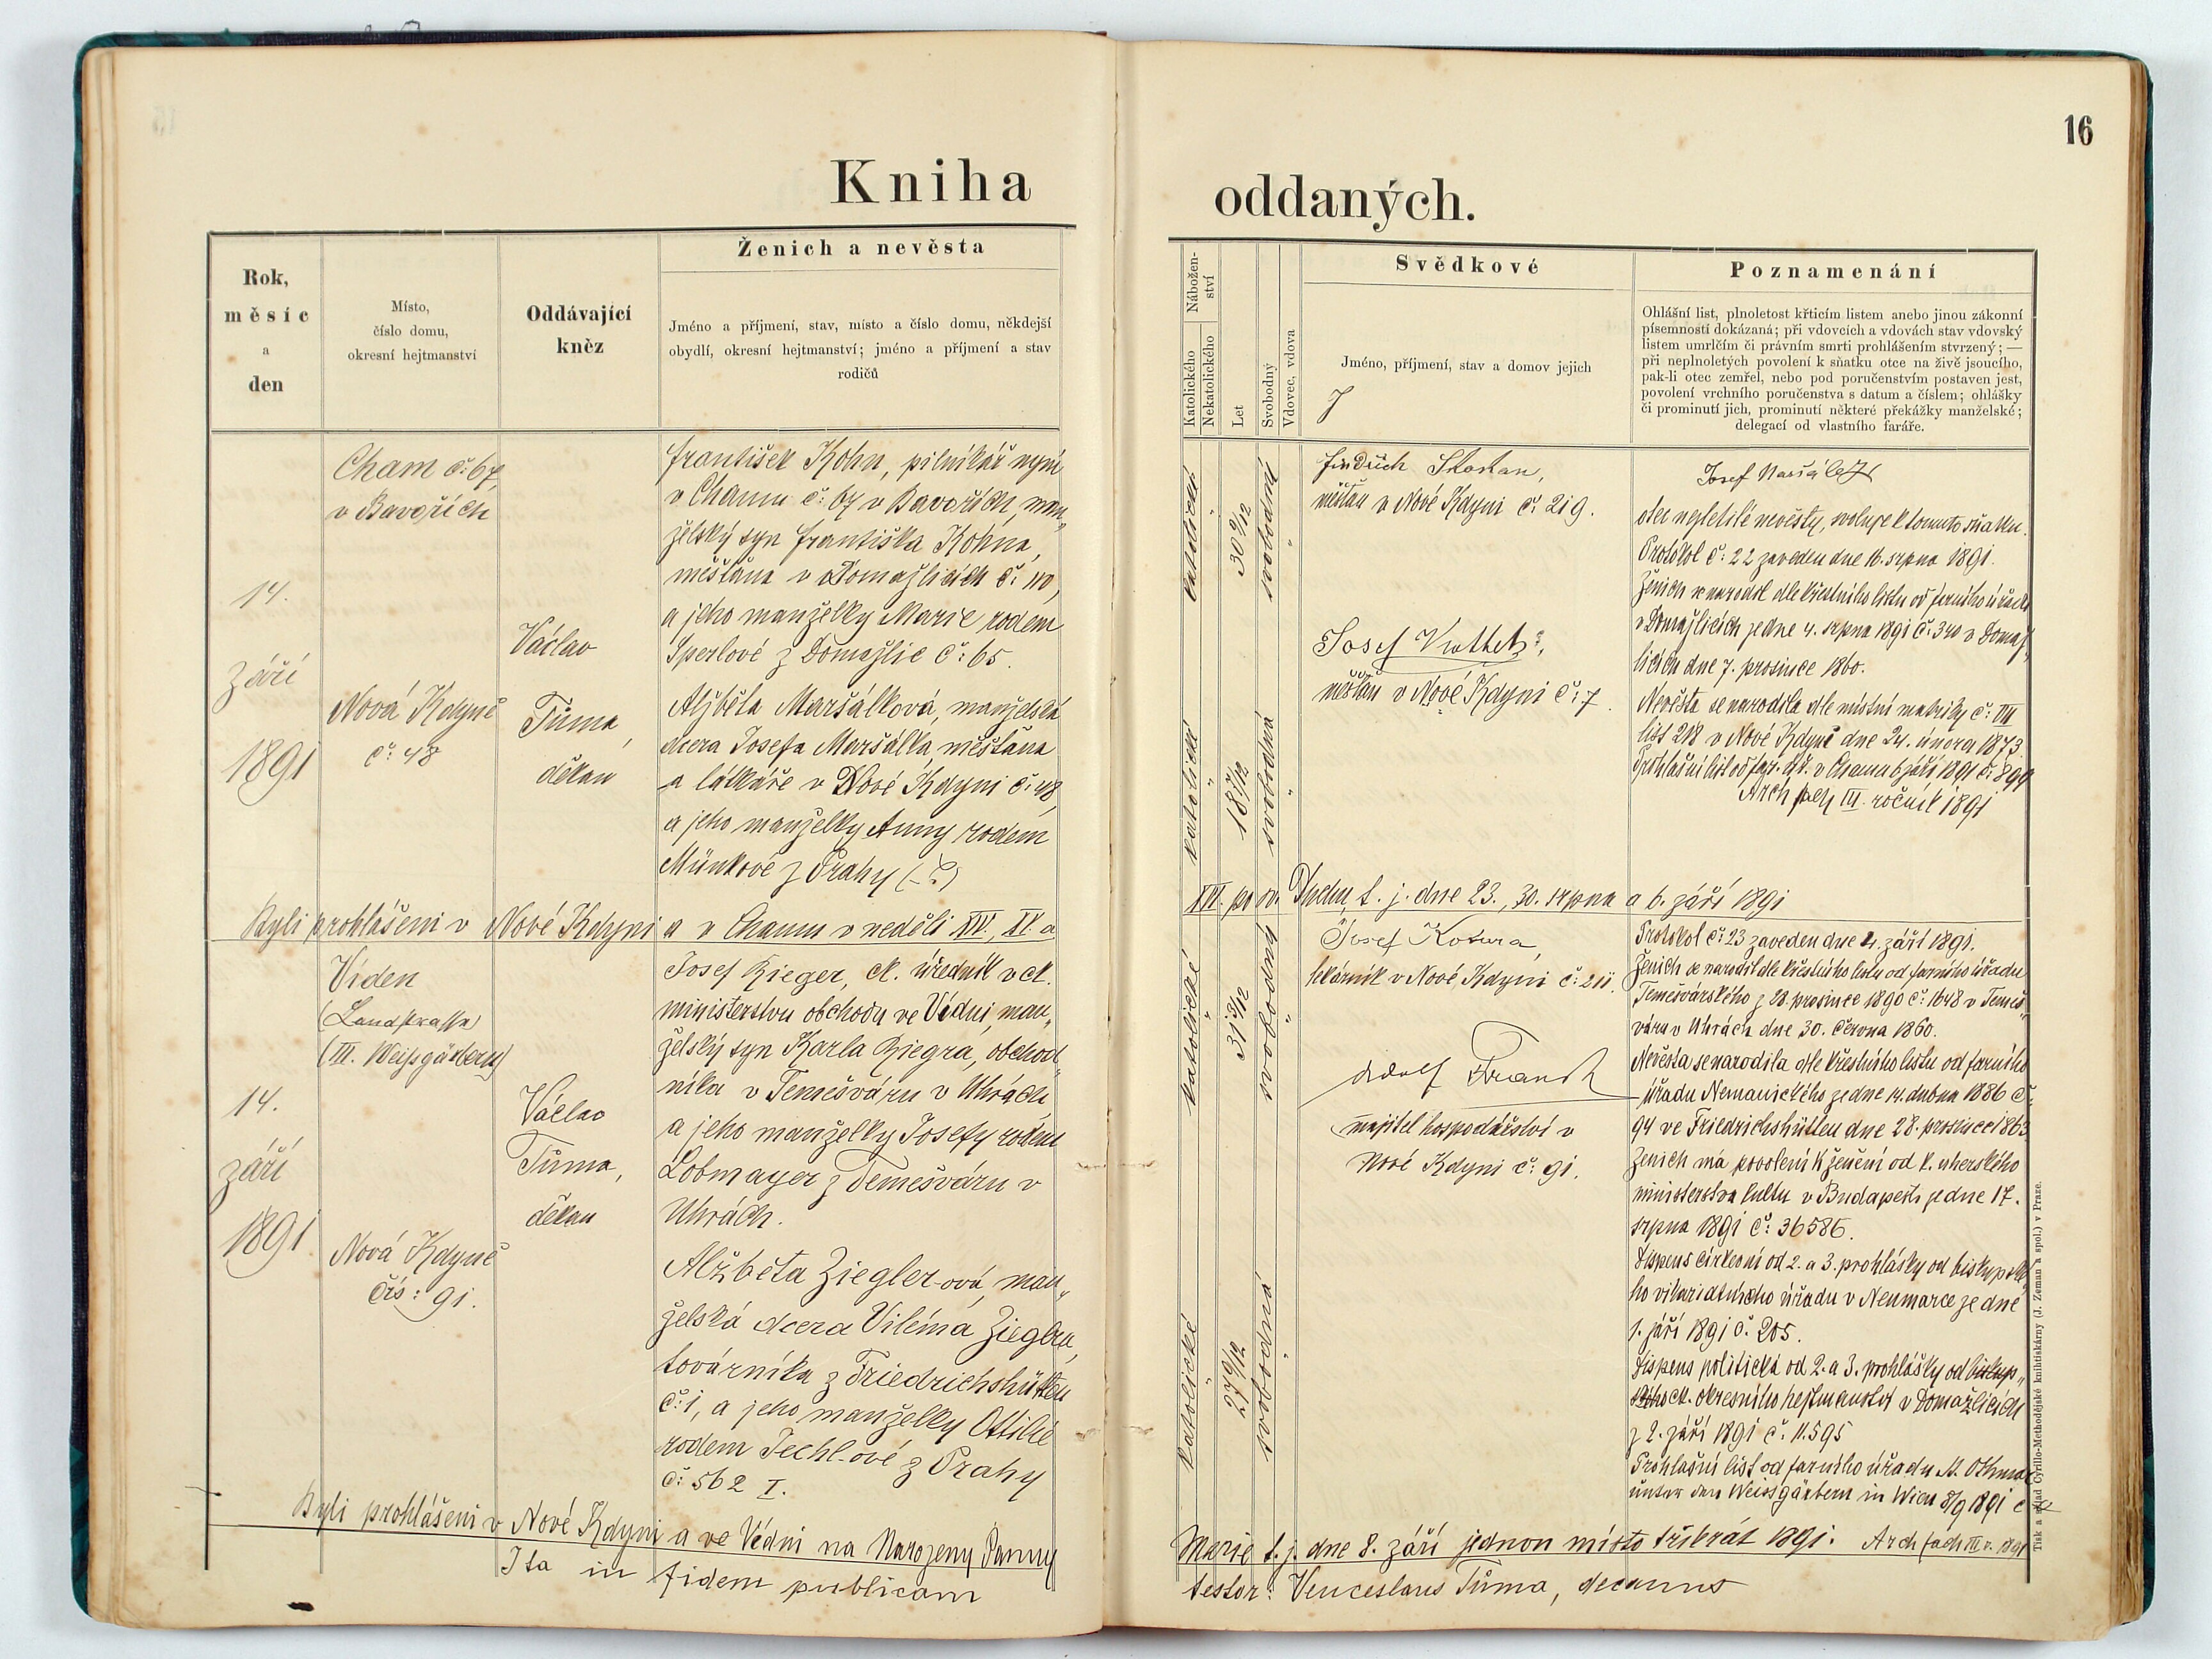 16
Kniha oddaných.
Rok,
měsíc
a
den
Místo,
číslo domu,
okresní hejtmanství
Oddávající
kněz
Ženich a nevěsta
Jméno a příjmení, stav, místo a číslo domu, někdejší
obydlí, okresní hejtmanství; jméno a příjmení a stav
rodičů
Nábožen-
ství
Katolického
Nekatolického
Let
Svobodný
Vdovec, vdova
Svědkové
Jméno, příjmení, stav a domov jejich
Poznamenání
Ohlášní list, plnoletost křticím listem anebo jinou zákonní
písemností dokázaná; při vdovcích a vdovách stav vdovský
listem umrlčím či právním smrti prohlášením stvrzený; —
při neplnoletých povolení k sňatku otce na živě jsoucího,
pak-li otec zemřel, nebo pod poručenstvím postaven jest,
povolení vrchního poručenstva s datum a číslem; ohlášky
či prominutí jich, prominutí některé překážky manželské;
delegací od vlastního faráře.
14.
září
1891
Cham č: 67,
v Bavořích
Nová Kdyně
č: 48
Václav
Tůma,
děkan
František Kohn, pilníkář nyní
v Chamu č: 67 v Bavořích, man„
želský syn Františka Kohna,
měšťana v Domažlicích č: 110,
a jeho manželky Marie rodem
Sperlové z Domažlic č: 65.
Alžběta Maršálková, manželská
dcera Josefa Maršálka, měšťana
a látkáře v Nové Kdyni č: 48,
a jeho manželky Anny rodem
Münkové z Prahy (-?)
katolické
"
30 9/12
svobodný
"
katolické
"
18 7/12
svobodná
"
Jindřich
měšťan v Nové Kdyni č: 219.
Josef
měšťan v Nové Kdyni č: 7.
Josef Maršálek
otec nepletilé nevěsty, svoluje k tomuto sňatku.
Protokol č: 22 zaveden dne 16. srpna 1891.
Ženich se narodil dle křestního listu od farního úřadu
v Domažlicích ze dne 4. srpna 1891 č: 340 v Domaž„
licích dne 7. prosince 1860.
Nevěsta se narodila dle místní matriky č: III
list 218 v Nové Kdyni dne 24. února 1873
Prohlášní list od far. úř. v Chamu 6 září 1891 č: 899
Arch fach III. ročník 1891
Byli prohlášeni v Nové Kdyni a v Chamu v neděli XIV., XV. a
XVI. po sv. Duchu, t. j. dne 23., 30. srpna a 6. září 1891
14.
září
1891
Víden
(Landstrasse)
(III. Weißgärbern)
Nová Kdyně
čís: 91.
Václav
Tůma,
děkan
Josef Rieger, ck. úředník v ck.
ministerstvu obchodu ve Vídni, man„
želský syn Karla Riegra, obchod„
níka v Temešváru v Uhrách
a jeho manželky Josefy rodem
Lobmayer z Temešváru v
Uhrách.
Alžběta Ziegler-ová, man„
želská dcera Viléma Zieglra,
továrníka z Friedrichshütten
č: 1, a jeho manželky Ottilie
rodem Techl-ové z Prahy
č: 562 I.
katolické
"
31 3/12
svobodný
"
katolické
"
27 9/12
svobodná
"
Josef Kotura,
lékárník v Nové Kdyni č: 211.
Adolf
majitel hospodářství v
Nové Kdyni č: 91.
Protokol č: 23 zaveden dne 2. září 1891.
Ženich se narodil dle křestního listu od farního úřadu
Temešvárského z 28. prosince 1890 č: 1648 v Temeš„
váru v Uhrách dne 30. června 1860.
Nevěsta se narodila dle křestního listu od farního
úřadu Nemanického ze dne 14. dubna 1886 č:
94 ve Friedrichshütten dne 28. prosince 1863
Ženich má povolení k ženění od k. uherského
ministerstva kultu v Budapešti ze dne 17.
srpna 1891 č: 36586.
Dispens církevní od 2. a 3. prohlášky od biskupské„
ho vikariatního úřadu v Neumarce ze dne
1. září 1891 č. 205.
Dispens politická od 2. a 3. prohlášky od biskup„
ského ck. okresního hejtmanství v Domažlicích
z 2. září 1891 č: 11.595
Prohlašní list od farního úřadu St. Othmar
unter den Weissgärbern in Wien 8/9 1891
Byli prohlášeni v Nové Kdyni a ve Vídni na Narozeny Panny
Marie t. j. dne 8. září jednou místo třikrát 1891. Arch fach III r. 1891
Ita in fidem publicam
testor: Venceslaus Tůma, decanus
Tisk a sklad Cyrillo-Methodějské knihtiskárny (J. Zeman a spol.) v Praze.